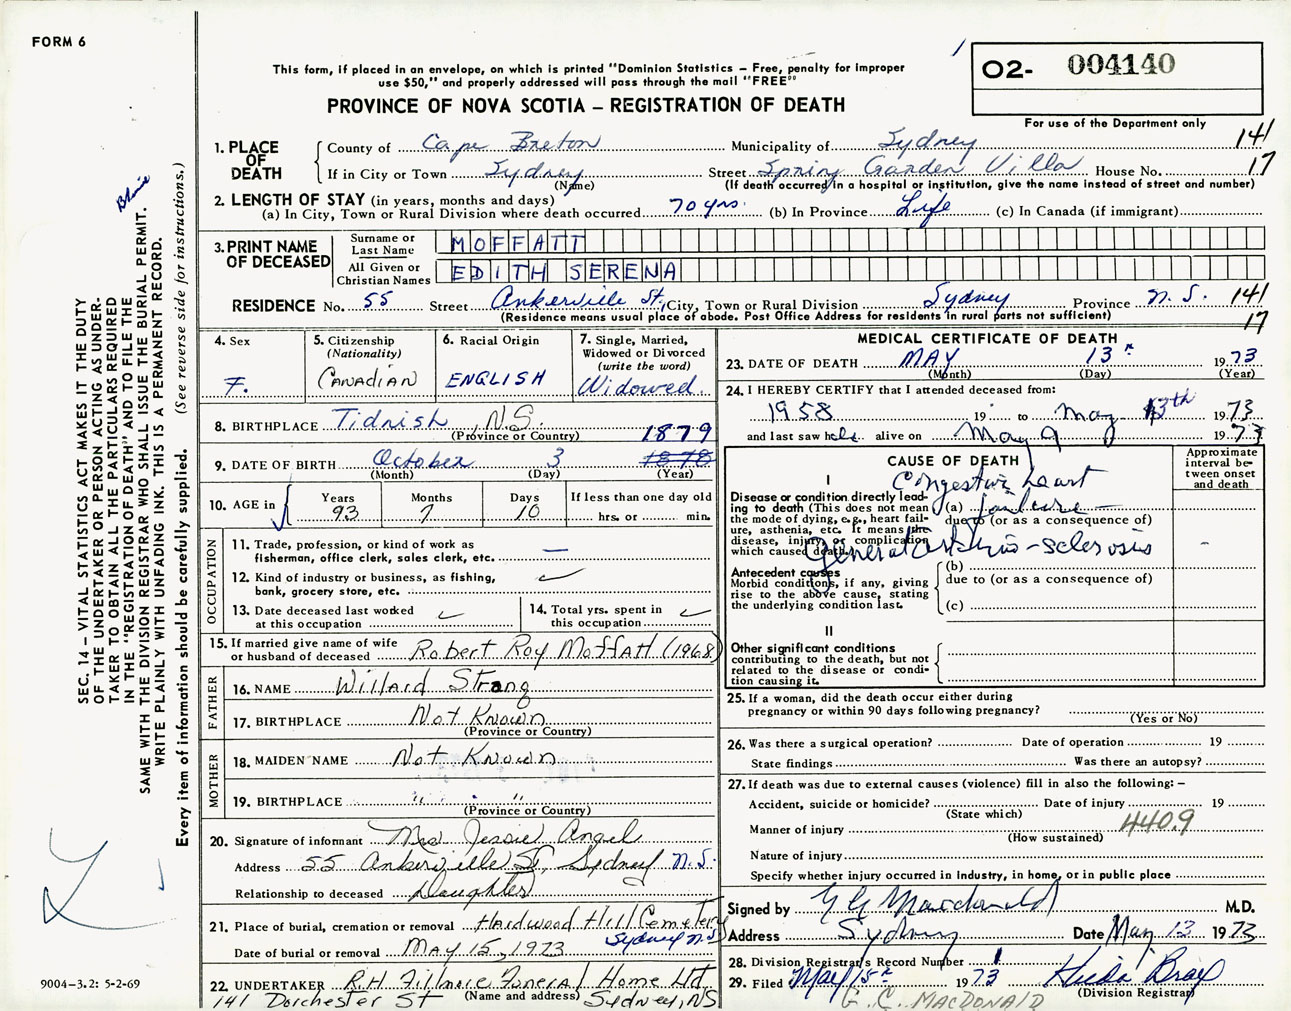 FORM 6
This form, if placed in an envelope, on which is printed "Dominion Statistics – Free, penalty for improper
use $50," and properly addressed will pass through the mail "FREE"
PROVINCE OF NOVA SCOTIA – REGISTRATION OF DEATH
O2- 004140
For use of the Department only
1. PLACE OF DEATH
County of Cape Breton Municipality of Sydney 141
If in City or Town Sydney (Name) Street Spring Garden Villa House No. 17
(If death occurred in a hospital or institution, give the name instead of street and number)
2. LENGTH OF STAY (in years, months and days)
(a) In City, Town or Rural Division where death occurred 70 yrs. (b) In Province Life (c) In Canada (if immigrant)
3. PRINT NAME OF DECEASED
Surname or Last Name MOFFATT
All Given or Christian Names EDITH SERENA
RESIDENCE No. 55 Street Ankerville St. City, Town or Rural Division Sydney Province N.S. 141
(Residence means usual place of abode. Post Office Address for residents in rural parts not sufficient) 17
4. Sex
F.
5. Citizenship
(Nationality)
CANADIAN
6. Racial Origin
ENGLISH
7. Single, Married,
Widowed or Divorced
(write the word)
Widowed
8. BIRTHPLACE Tidnish, N.S.
(Province or Country)
1879
9. DATE OF BIRTH October 3 1878
(Month) (Day) (Year)
10. AGE in
Years 93
Months 7
Days 10
If less than one day old
hrs. or min.
OCCUPATION
11. Trade, profession, or kind of work as
fisherman, office clerk, sales clerk, etc. —
12. Kind of industry or business, as fishing,
bank, grocery store, etc.
13. Date deceased last worked
at this occupation
14. Total yrs. spent in
this occupation
15. If married give name of wife
or husband of deceased Robert Roy Moffatt (1968)
FATHER
16. NAME Willard Strang
17. BIRTHPLACE Not Known
(Province or Country)
MOTHER
18. MAIDEN NAME Not Known
19. BIRTHPLACE " "
(Province or Country)
20. Signature of informant Mrs Jessie Angel
Address 55 Ankerville St, Sydney N.S.
Relationship to deceased Daughter
21. Place of burial, cremation or removal Hardwood Hill Cemetery
Sydney N.S.
Date of burial or removal MAY 15, 1973
22. UNDERTAKER R.H. Fillmore Funeral Home Ltd.
(Name and address)
141 Dorchester St Sydney, NS
MEDICAL CERTIFICATE OF DEATH
23. DATE OF DEATH MAY 13th 1973
(Month) (Day) (Year)
24. I HEREBY CERTIFY that I attended deceased from:
1958 19 to May 13th 1973
and last saw h alive on May 9 1973
CAUSE OF DEATH
Approximate
interval be-
tween onset
and death
I
Disease or condition directly lead-
ing to death (This does not mean
the mode of dying, e.g., heart fail-
ure, asthenia, etc. It means the
disease, injury, or complication
which caused death.
(a) Congestive heart failure
due to (or as a consequence of)
General Arterio-sclerosis
Antecedent causes
Morbid conditions, if any, giving
rise to the above cause, stating
the underlying condition last.
(b)
due to (or as a consequence of)
(c)
II
Other significant conditions
contributing to the death, but not
related to the disease or condi-
tion causing it.
25. If a woman, did the death occur either during
pregnancy or within 90 days following pregnancy?
(Yes or No)
26. Was there a surgical operation? Date of operation 19
State findings Was there an autopsy?
27. If death was due to external causes (violence) fill in also the following:–
Accident, suicide or homicide? Date of injury 19
(State which)
Manner of injury 440.9
(How sustained)
Nature of injury
Specify whether injury occurred in industry, in home, or in public place
Signed by G G Macdonald M.D.
Address Sydney Date May 13 1973
28. Division Registrar's Record Number
29. Filed May 15th 1973 Bray
(Division Registrar)
G. C. MACDONALD
SEC. 14 – VITAL STATISTICS ACT MAKES IT THE DUTY
OF THE UNDERTAKER OR PERSON ACTING AS UNDER-
TAKER TO OBTAIN ALL THE PARTICULARS REQUIRED
IN THE "REGISTRATION OF DEATH" AND TO FILE THE
SAME WITH THE DIVISION REGISTRAR WHO SHALL ISSUE THE BURIAL PERMIT.
WRITE PLAINLY WITH UNFADING INK. THIS IS A PERMANENT RECORD.
Every item of information should be carefully supplied. (See reverse side for instructions.)
9004-3.2: 5-2-69